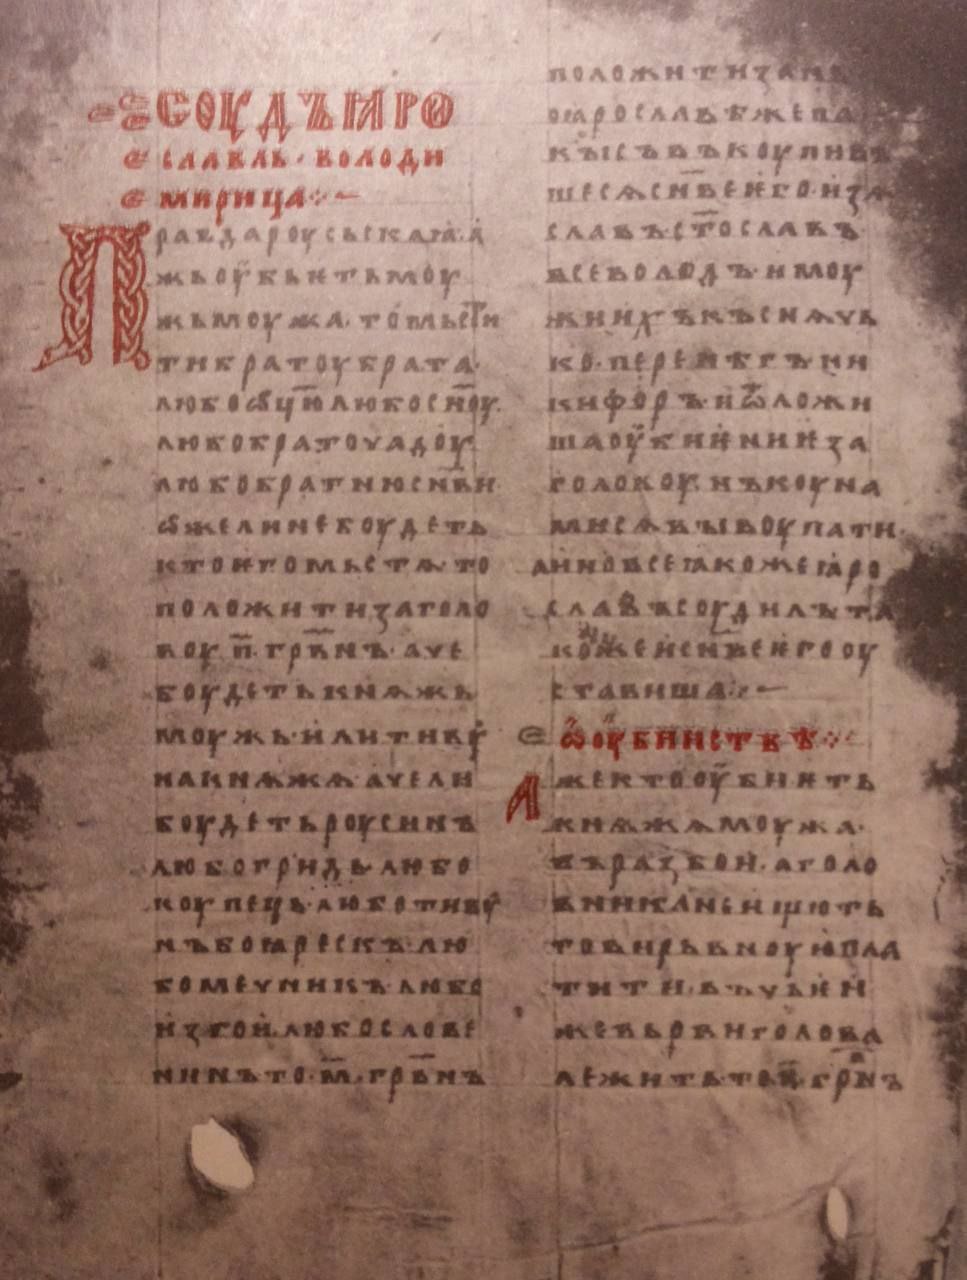 СОУДЪ ꙖРО
СЛАВЛЬ · ВОЛОДИ
МИРИЦА ⁘ —
ПРАВДА РОУСЬСКАꙖ · А
ЖЬ ОУБЬЕТЬ МОУ
ЖЬ МОУЖА · ТО МЬСТИ
ТИ БРАТОУ БРАТА ·
ЛЮБО ѠЦЮ ЛЮБО СНОУ ·
ЛЮБО БРАТОУЧАДОУ ·
ЛЮБО БРАТНЮ СНВИ ·
ѠЖЕ ЛИ НЕ БОУДЕТЬ
КТО ЕГО МЬСТѦ · ТО
ПОЛОЖИТИ ЗА ГОЛО
ВОУ П · ГРВНЪ · АЧЕ
БОУДЕТЬ КНѦЖЬ
МОУЖЬ · ИЛИ ТИВУ
НА КНѦЖѦ · АЧЕ ЛИ
БОУДЕТЬ РОУСИНЪ
ЛЮБО ГРИДЬ · ЛЮБО
КОУПЕЦЬ · ЛЮБО ТИВУ
НЪ БОꙖРЕСКЪ · ЛЮ
БО МЕЧНИКЪ · ЛЮБО
ИЗГОИ · ЛЮБО СЛОВЕ
НИНЪ ТО · М · ГРВНЪ
ПОЛОЖИТИ ЗА НЬ
ꙖРОСЛАВѢ ЖЕ ПА
КЫ СЪВЪКОУПИВЪ
ШЕСѦ СНВЕ ЕГО · ИЗѦ
СЛАВЪ СТОСЛАВЪ
ВСЕВОЛОДЪ · И МОУ
ЖИ ИХЪ КЪСНѦЧЬ
КО · ПЕРЕНѢГЪ НИ
КИФОРЪ · И ѠЛОЖИ
ША ОУБИЕНИЕ ЗА
ГОЛОВОУ · НЪ КОУНА
МИ СѦ ВЫКОУПАТИ ·
А ИНО ВСЕ ꙖКОЖЕ ꙖРО
СЛАВЪ СОУДИЛЪ ТА
КОЖЕ И СНВЕ ЕГО ОУ
СТАВИША ⁘ —
Ѡ ОУБИИСТВѢ ⁘
АЖЕ КТО ОУБИЕТЬ
КНѦЖѦ МОУЖА ·
ВЪ РАЗБОИ · А ГОЛО
ВНИКА НЕ ИЩЮТЬ
ТО ВИРЬВНОУЮ ПЛА
ТИТИ · ВЪ ЧЬЕИ
ЖЕ ВЬРВИ ГОЛОВА
ЛЕЖИТЬ ТО П · ГРВНЪ